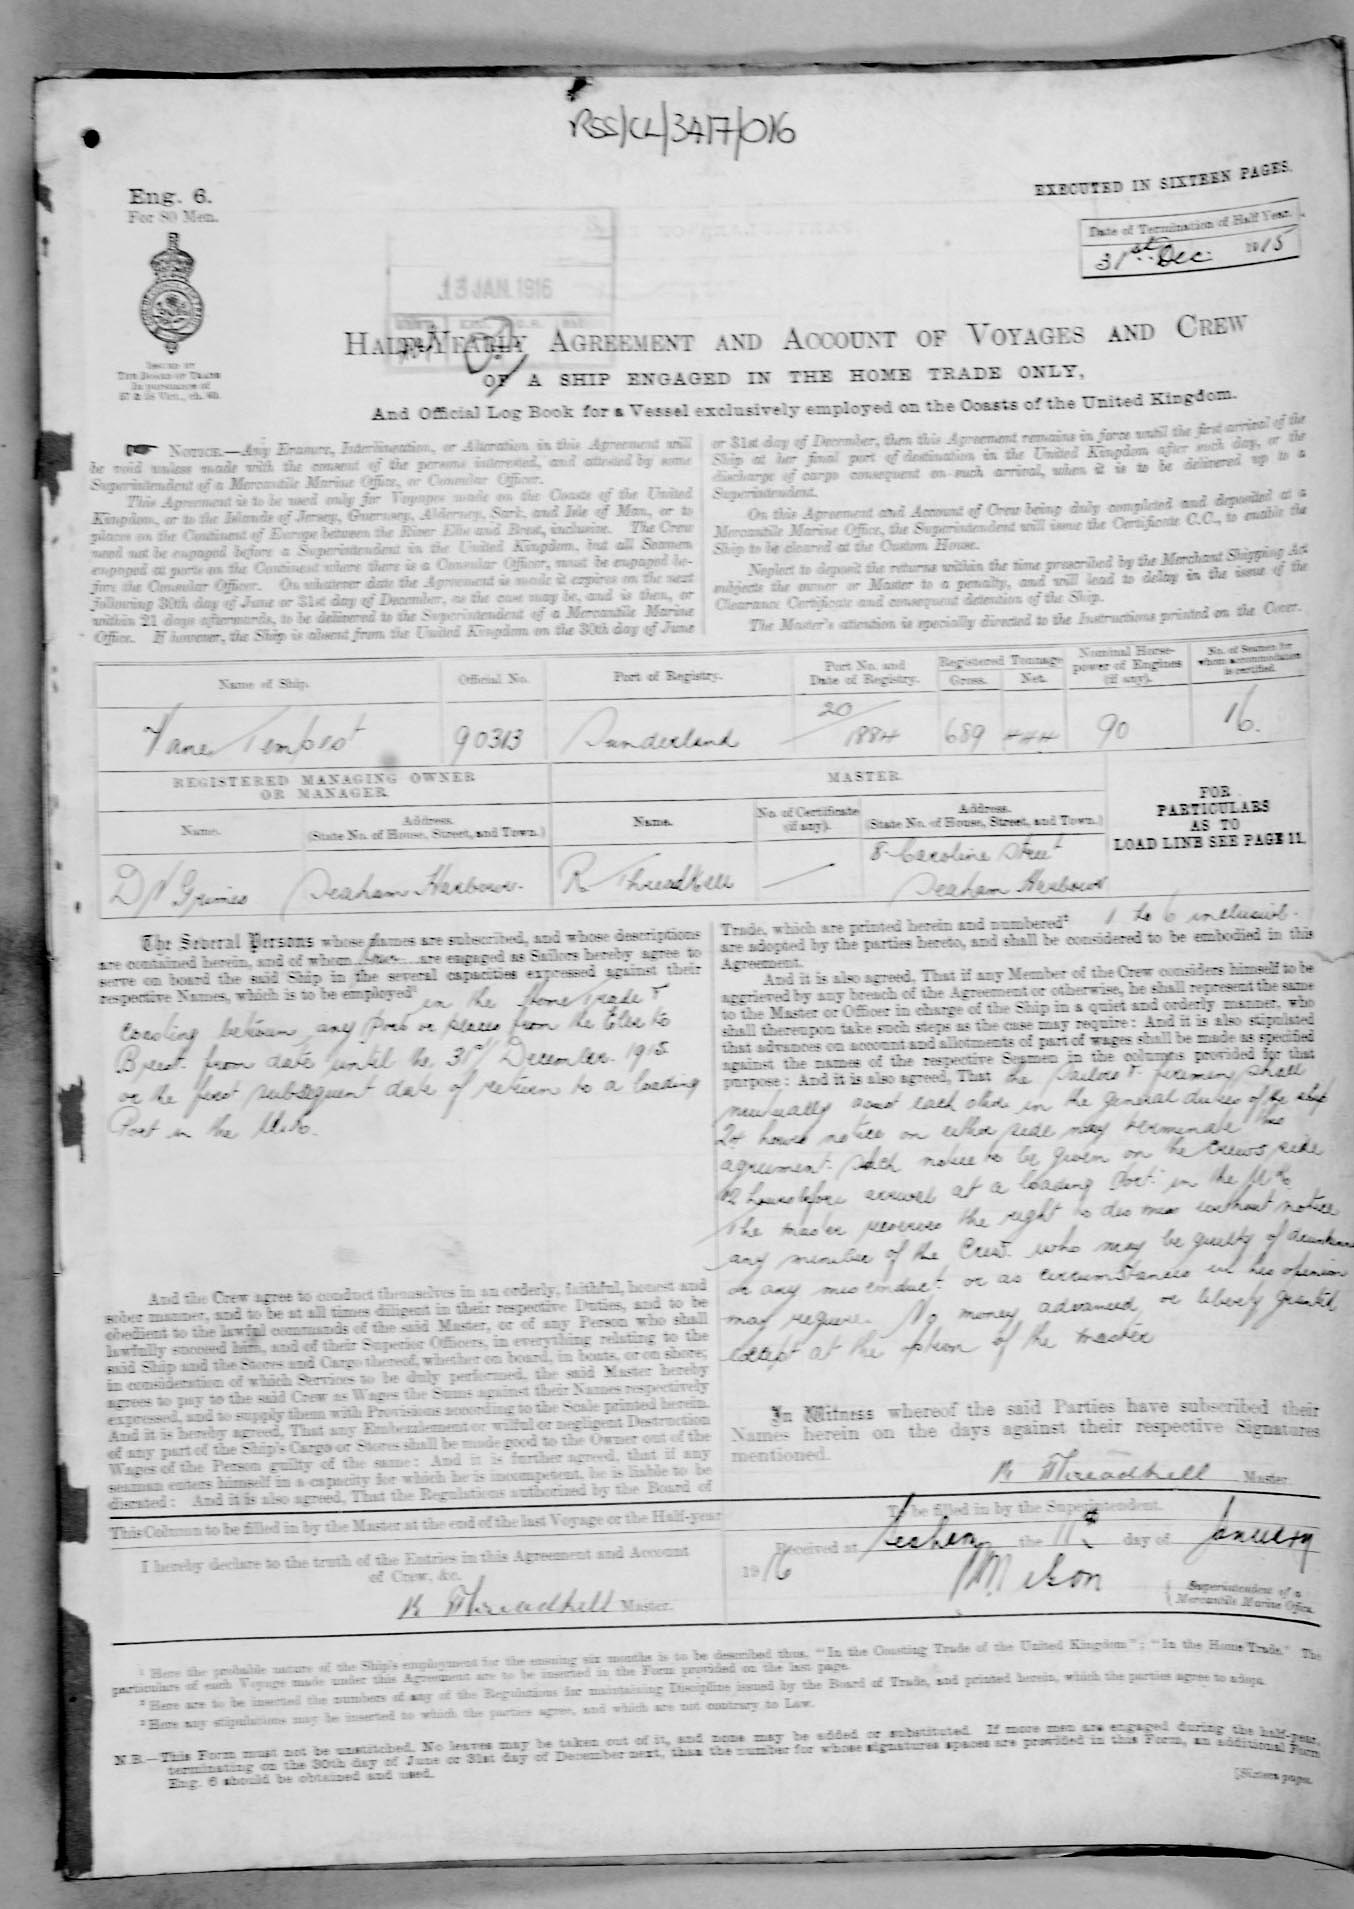 RSS/CL/3417/016
EXECUTED IN SIXTEEN PAGES.
Eng. 6.
For 80 Men.
Date of Termination of Half Year.
31st Dec. 1915
13 JAN. 1916
ISSUED BY
THE BOARD OF TRADE
In pursuance of
57 & 58 Vict., ch. 60.
HALF-YEARLY AGREEMENT AND ACCOUNT OF VOYAGES AND CREW
OF A SHIP ENGAGED IN THE HOME TRADE ONLY,
And Official Log Book for a Vessel exclusively employed on the Coasts of the United Kingdom.
NOTICE.—Any Erasure, Interlineation, or Alteration in this Agreement will
be void unless made with the consent of the persons interested, and attested by some
Superintendent of a Mercantile Marine Office, or Consular Officer.
This Agreement is to be used only for Voyages made on the Coasts of the United
Kingdom, or to the Islands of Jersey, Guernsey, Alderney, Sark, and Isle of Man, or to
places on the Continent of Europe between the River Elbe and Brest, inclusive. The Crew
need not be engaged before a Superintendent in the United Kingdom, but all Seamen
engaged at ports on the Continent where there is a Consular Officer, must be engaged be-
fore the Consular Officer. On whatever date the Agreement is made it expires on the next
following 30th day of June or 31st day of December, as the case may be, and is then, or
within 21 days afterwards, to be delivered to the Superintendent of a Mercantile Marine
Office. If however, the Ship is absent from the United Kingdom on the 30th day of June
or 31st day of December, then this Agreement remains in force until the first arrival of the
Ship at her final port of destination in the United Kingdom after such day, or the
discharge of cargo consequent on such arrival, when it is to be delivered up to a
Superintendent.
On this Agreement and Account of Crew being duly completed and deposited at a
Mercantile Marine Office, the Superintendent will issue the Certificate C.C., to enable the
Ship to be cleared at the Custom House.
Neglect to deposit the returns within the time prescribed by the Merchant Shipping Act
subjects the owner or Master to a penalty, and will lead to delay in the issue of the
Clearance Certificate and consequent detention of the Ship.
The Master's attention is specially directed to the Instructions printed on the Cover.
Name of Ship. Official No. Port of Registry. Port No. and Date of Registry. Registered Tonnage Gross. Net. Nominal Horse-power of Engines (if any). No. of Seamen for whom accommodation is certified.
Vane Tempest 90313 Sunderland 20/1884 689 444 90 16.
REGISTERED MANAGING OWNER
OR MANAGER.
MASTER.
FOR
PARTICULARS
AS TO
LOAD LINE SEE PAGE 11.
Name. Address. (State No. of House, Street, and Town.) Name. No. of Certificate (if any). Address. (State No. of House, Street, and Town.)
D N Grimes Seaham Harbour. R Threadkell 8 Caroline Street
Seaham Harbour
The Several Persons whose names are subscribed, and whose descriptions
are contained herein, and of whom are engaged as Sailors hereby agree to
serve on board the said Ship in the several capacities expressed against their
respective Names, which is to be employed¹ in the Home Trade &
Coasting between any Port or places from the Elbe to
Brest. from date until the 31st December. 1915.
or the first subsequent date of return to a loading
Port in the U.K.
And the Crew agree to conduct themselves in an orderly, faithful, honest and
sober manner, and to be at all times diligent in their respective Duties, and to be
obedient to the lawful commands of the said Master, or of any Person who shall
lawfully succeed him, and of their Superior Officers, in everything relating to the
said Ship and the Stores and Cargo thereof, whether on board, in boats, or on shore;
in consideration of which Services to be duly performed, the said Master hereby
agrees to pay to the said Crew as Wages the Sums against their Names respectively
expressed, and to supply them with Provisions according to the Scale printed herein.
And it is hereby agreed, That any Embezzlement or wilful or negligent Destruction
of any part of the Ship's Cargo or Stores shall be made good to the Owner out of the
Wages of the Person guilty of the same: And it is further agreed, that if any
seaman enters himself in a capacity for which he is incompetent, he is liable to be
disrated: And it is also agreed, That the Regulations authorized by the Board of
Trade, which are printed herein and numbered² 1 to 6 inclusive.
are adopted by the parties hereto, and shall be considered to be embodied in this
Agreement.
And it is also agreed, That if any Member of the Crew considers himself to be
aggrieved by any breach of the Agreement or otherwise, he shall represent the same
to the Master or Officer in charge of the Ship in a quiet and orderly manner, who
shall thereupon take such steps as the case may require: And it is also stipulated
that advances on account and allotments of part of wages shall be made as specified
against the names of the respective Seamen in the columns provided for that
purpose: And it is also agreed, That the Sailors & firemen shall
mutually assist each other in the general duties of the ship
24 hours notice on either side may terminate this
agreement. Such notice to be given on the Crews side
12 hours before arrival at a loading Port in the U.K.
The master reserves the right to dismiss without notice
any member of the Crew. who may be guilty of drunkenness
or any misconduct or as circumstances in his opinion
may require. No money advanced or liberty granted
except at the option of the master
In Witness whereof the said Parties have subscribed their
Names herein on the days against their respective Signatures
mentioned.
R Threadkell Master.
This Column to be filled in by the Master at the end of the last Voyage or the Half-year
I hereby declare to the truth of the Entries in this Agreement and Account
of Crew, &c.
R Threadkell Master.
To be filled in by the Superintendent.
Received at Seaham the 11th day of January
1916
Superintendent of a
Mercantile Marine Office.
¹ Here the probable nature of the Ship's employment for the ensuing six months is to be described thus, "In the Coasting Trade of the United Kingdom"; "In the Home Trade." The
particulars of each Voyage made under this Agreement are to be inserted in the Form provided on the last page.
² Here are to be inserted the numbers of any of the Regulations for maintaining Discipline issued by the Board of Trade, and printed herein, which the parties agree to adopt.
³ Here any stipulations may be inserted to which the parties agree, and which are not contrary to Law.
N.B.—This Form must not be unstitched. No leaves may be taken out of it, and none may be added or substituted. If more men are engaged during the half-year,
terminating on the 30th day of June or 31st day of December next, than the number for whose signatures spaces are provided in this Form, an additional Form
Eng. 6 should be obtained and used.
[Sixteen pages.